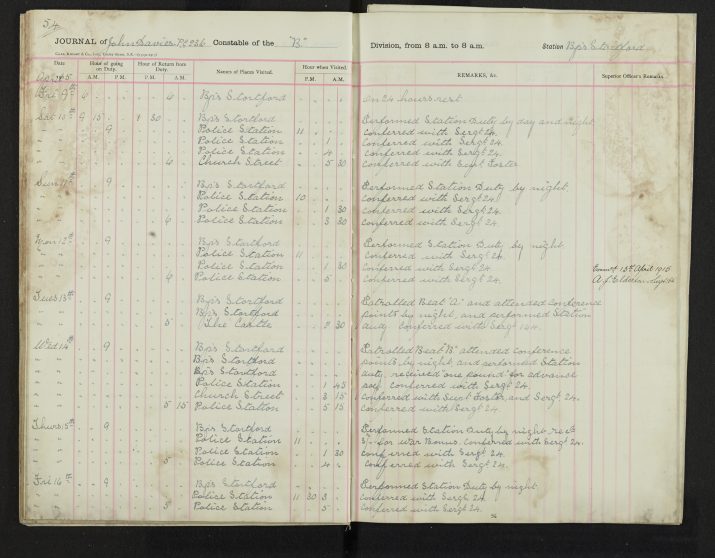 54
JOURNAL of John Davies P.C. 236 Constable of the "B" Division, from 8 a.m. to 8 a.m. Station Bp's Stortford
Date Hour of going on Duty. Hour of Return from Duty. Names of Places Visited. Hour when Visited. REMARKS, &c. Superior Officer's Remarks.
A.M. P.M. P.M. A.M. P.M. A.M.
Fri 9th 6 Bp's Stortford On 24 hours rest
Sat 10th 9 15 1 30 Bp's Stortford Performed Station Duty by day and Night
" 9 Police Station 11 Conferred with Sergt 24.
" Police Station 1 Conferred with Sergt 24.
" Police Station 4 Conferred with Sergt 24.
" Church Street 5 30 Conferred with Supt Foster
Sun 11th 9 Bp's Stortford Performed Station Duty by night.
" Police Station 10 Conferred with Sergt 24.
" Police Station 1 30 Conferred with Sergt 24.
" 6 Police Station 3 30 Conferred with Sergt 24.
Mon 12th 9 Bp's Stortford Performed Station Duty by night.
" Police Station 11 Conferred with Sergt 24.
" Police Station 1 30 Conferred with Sergt 24.
" Police Station 5 Conferred with Sergt 24.
13th April 1915
Tues 13th 9 Bp's Stortford Patrolled Beat "A" and attended conference
" Bp's Stortford points by night, and performed Station
" 5 The Castle 2 30 duty. Conferred with Sergt
Wed 14th 9 Bp's Stortford Patrolled Beat "B" attended conference
" Bp's Stortford points by night, and performed Station
" Bp's Stortford duty, received one pound for advance
" Police Station 1 45 pay. Conferred with Sergt 24.
" Church Street 3 15 Conferred with Supt Foster and Sergt 24.
" 5 15 Police Station 5 15 Conferred with Sergt 24.
Thurs 15th 9 Bp's Stortford Performed Station Duty by night, recd
" Police Station 11 for War Bonus. Conferred with Sergt 24.
" Police Station 1 30 Conferred with Sergt 24.
" 5 Police Station 4 Conferred with Sergt 24.
Fri 16th 9 Bp's Stortford Performed Station Duty by night.
" Police Station 11 30 3 Conferred with Sergt 24.
" 5 Police Station 5 Conferred with Sergt 24.